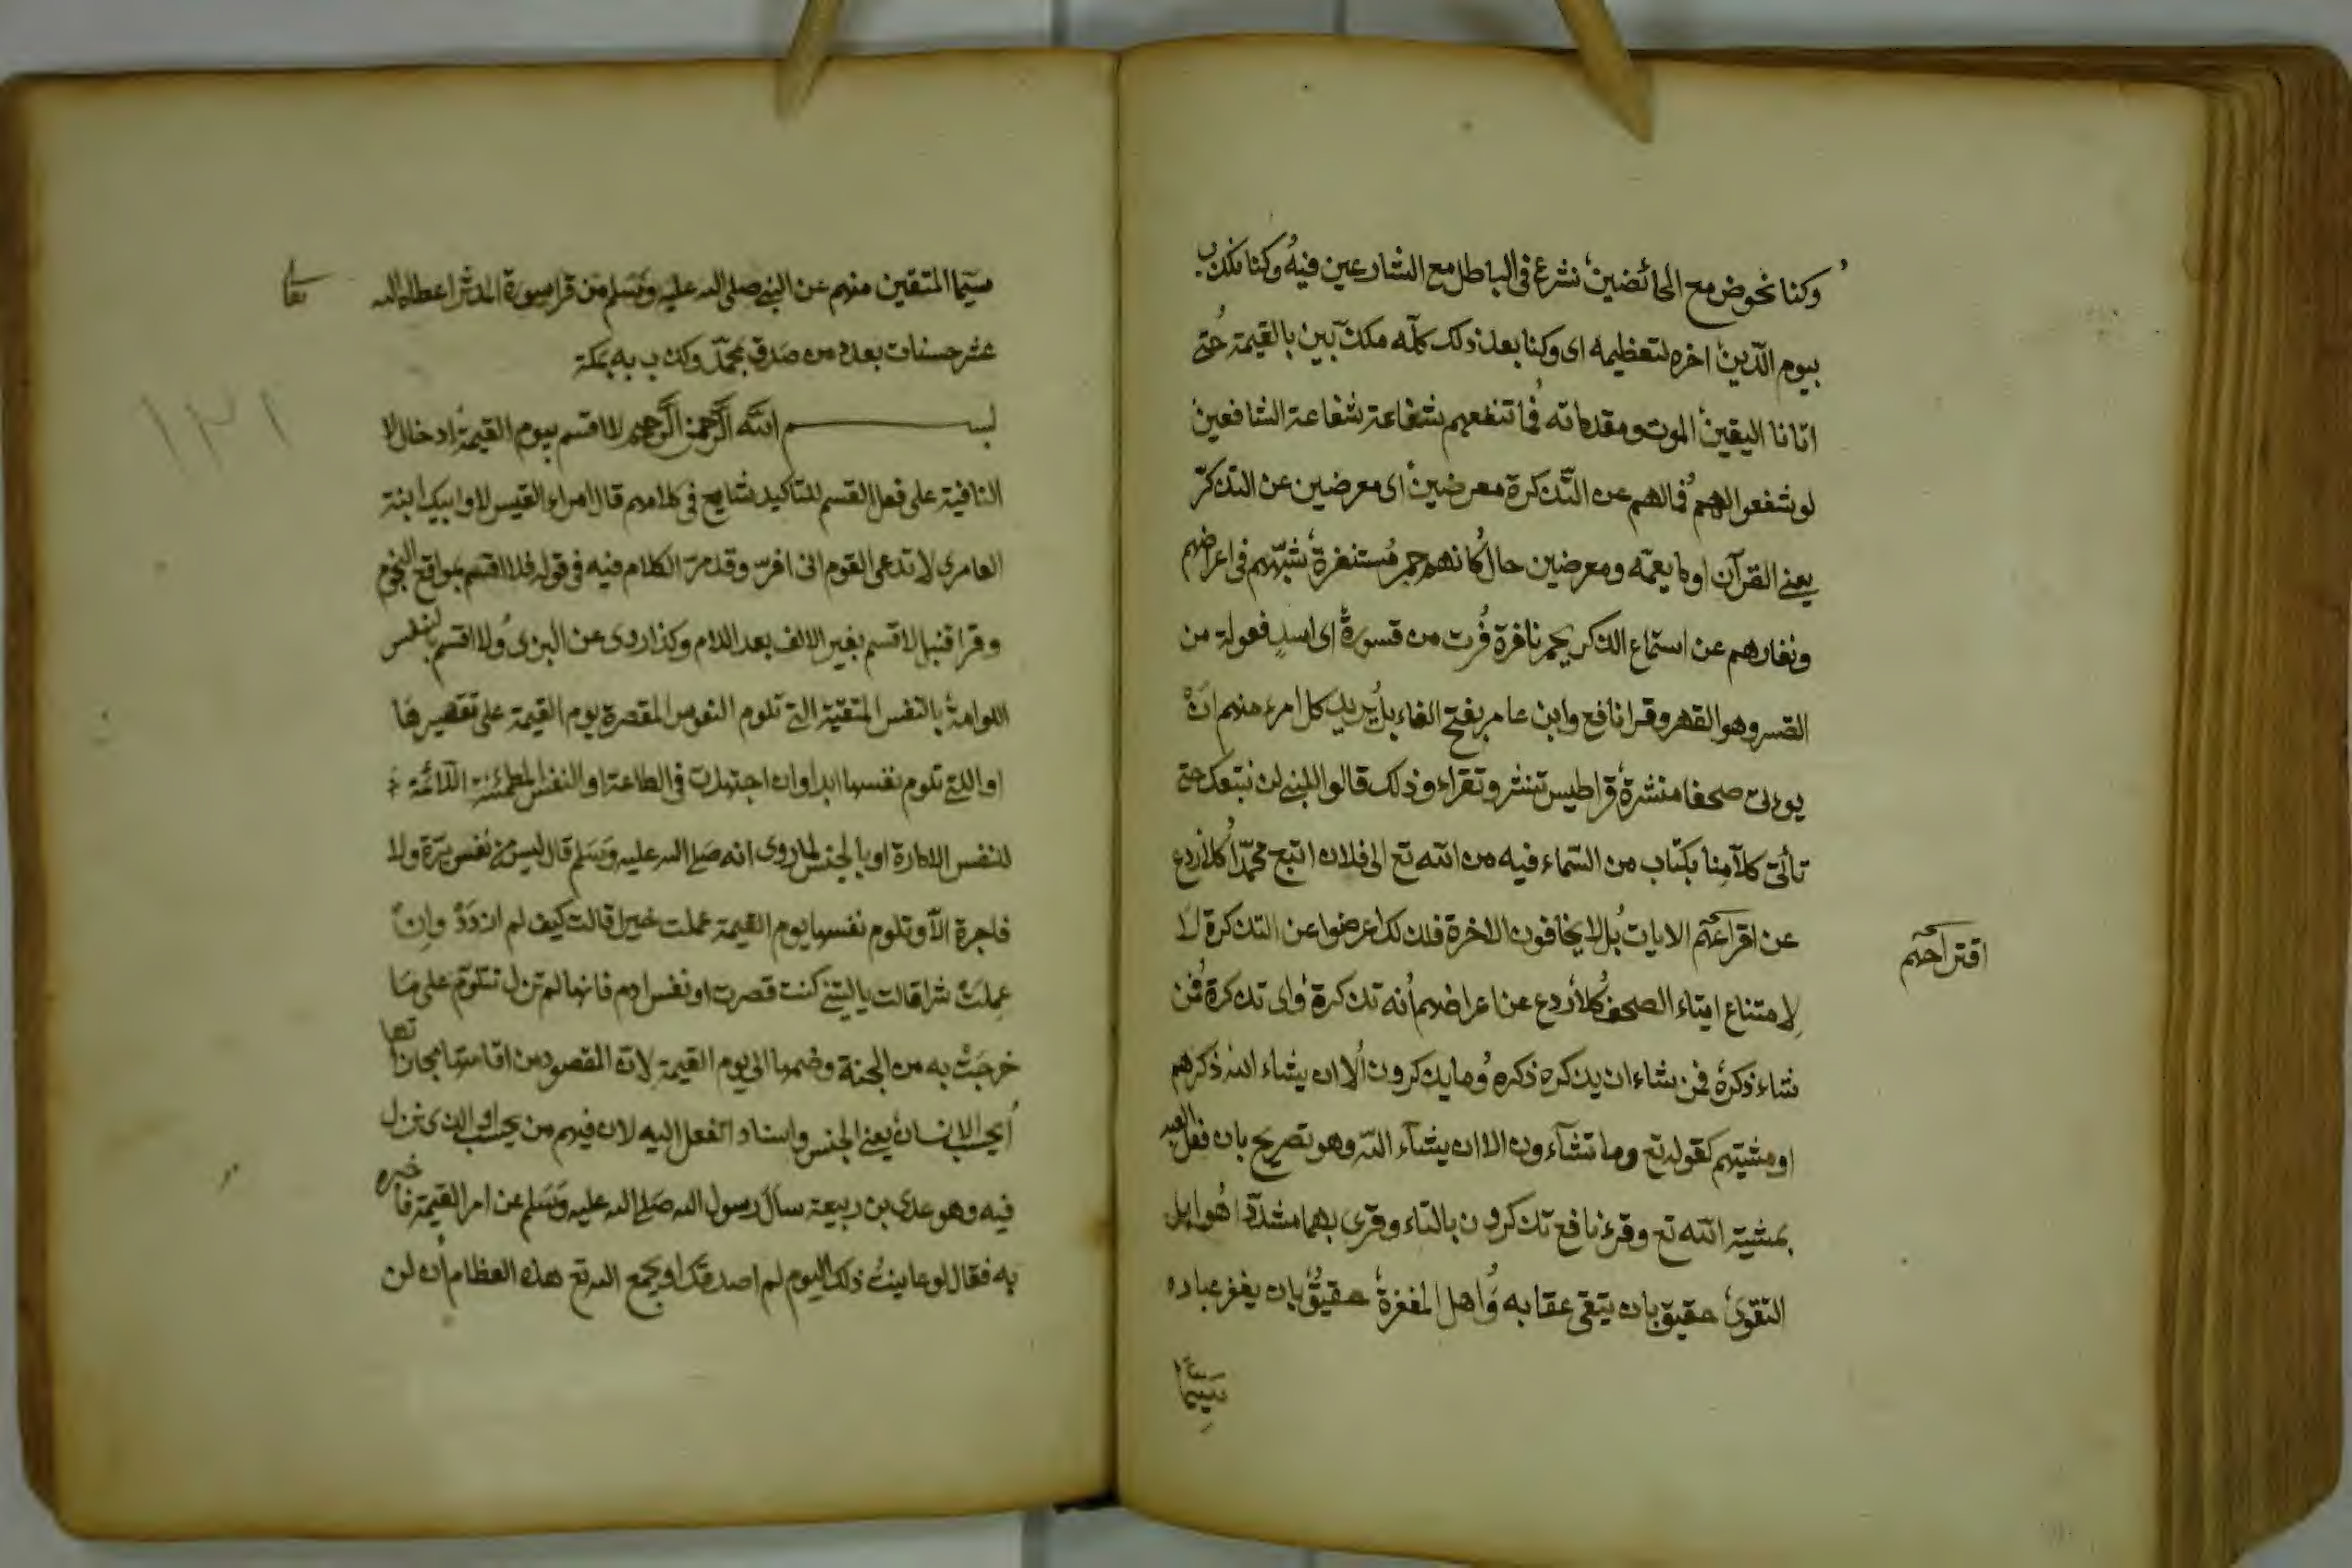 وكنا نخوض مع الخائضين نشرع فى الباطل مع الشارعين فيه وكنا نكذب
بيوم الدّين اخره لتعظيمه اى وكنا بعد ذلك كلّه مكذّبين بالقيمة حتى
اتانا اليقين الموت ومقدماته فما تنفعهم شفاعة شفاعة الشافعين
لو شفعوا لهم فما لهم عن التّذكرة معرضين اى معرضين عن التذكرّ
يعنى القرآن او ما يعمّه ومعرضين حال كانهم حمر مستنفرة شبّههم فى اعراضهم
ونفارهم عن استماع الذكر بحمر نافرة فرت من قسورة اى اسد فعولة من
القسر وهو القهر وقرا نافع وابن عامر بفتح الفاء بل يريد كل امرء منهم ان
يوءتى صحفا منشرة قراطيس تنشر وتقراء وذلك قالوا للنبى لن نتبعك حتى
تأتى كلآ منا بكتاب من السّماء فيه من الله تع الى فلان اتبع محمّدا كلا ردع
عن اقراعهم الايات بل لا يخافون الاخرة فلذلك اعرضوا عن التذكرة لا
اقتراحهم
لامتناع ايتاء الصحف كلا ردع عن اعراضهم انه تذكرة واى تذكرة فمن
شاء ذكره فمن شاء ان يذكره ذكره وما يذكرون الا ان يشاء الله ذكرهم
او مشيتهم كقوله تع وما تشآءون الا ان يشآء الله وهو تصريح بان فعل العبد
بمشية الله تع وقرء نافع تذكرون بالتاء وقرى بهما مشدّدا هو اهل
التقوى حقيق بان يتقى عقابه واهل المغفرة حقيق بان يغفر عباده
سيّما
سيّما المتقين منهم عن النبى صلى الله عليه وسَلم من قرا سورة المدثر اعطاه الله
عشر حسنات بعدد من صدق بمحمّد وكذب به بمكة
بسم الله الرَّحمن الرَّحيم لا اقسم بيوم القيمة ادخال لا
النافية على فعل القسم للتاكيد شايع فى كلامهم قال امراء القيس لا وابيك ابنة
العامرى لا تدعى القوم انى افرّ وقد مرّ الكلام فيه فى قوله فلا اقسم بمواقع النجوم
وقرا قنبل لاقسم بغير الالف بعد اللام وكذا روى عن البزى ولا اقسم بالنفس
اللوامة بالنفس المتقية التى تلوم النفوس المقصرة يوم القيمة على تقصيرها
او اللتى تلوم نفسها ابدا وان اجتهدت فى الطاعة او النفس المطمئنة اللائمة
للنفس الامارة او بالجنس لما روى انه صَلى الله عليه وَسَلم قال ليس من نفس برّة ولا
فاجرة الاّ وتلوم نفسها يوم القيمة عملت خيرا قالت كيف لم ازدَدْ وان
عمِلتْ شرا قالت ياليتنى كنت قصرت او نفس ادم فانها لم تزل تتلوّم على مَا
خرجَتْ به من الجنة وضمها الى يوم القيمة لانّ المقصود من اقامتها مجازاتها
ايحسب الانسان يعنى الجنس واسناد الفعل اليه لان فيهم من يحسب او الذى نزل
فيه وهو عدى بن ربيعة سال رسول الله صَلى الله عليه وَسَلم عن امر القيمة فاخبره
به فقال لو عاينت ذلك اليوم لم اصدقك او يجمع الله تع هذه العظام أن لن
١٣١